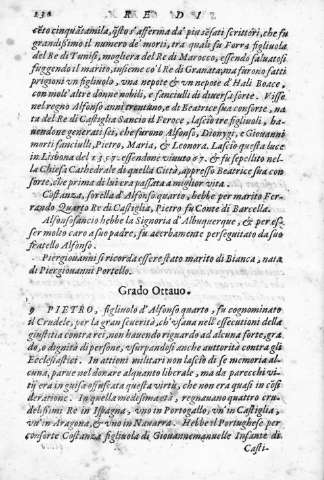 R E D I
cēto cinquātamila, q̃sto s'afferma da' piu sēsati scrittori, che fu
grandissimo il numero de' morti, tra quali fu Forra figliuola
del Re di Tunisi, mogliera del Re di Marocco, essendo saluatosi
fuggendo il marito, insieme co'l Re di Granata; ma furono fatti
prigioni vn figliuolo, vna nepote & vn nepote d'Hali Boace.
con molt'altre donne nobili, e fanciulli di diuersa sorte. Visse
nel regno Alfonso anni trentuno, e di Beatrice sua consorte, na
ta del Re di Castiglia Sancio il Feroce, lasciò tre figliuoli, ha-
uendone generati sei, che furono Alfonso, Dionygi, e Giouanni
morti fanciulli, Pietro, Maria, & Leonora. Lasciò questa luce
in Lisbona del 1357. essendone viuuto 67. & fu sepellito nel-
la Chiesa Cathedrale di quella Città, appresso Beatrice sua con
sorte, che prima di lui era passata a miglior vita.
Costanza, sorella d'Alfonso quarto, hebbe per marito Fer-
rando Quarto Re di Castiglia, Pietro fu Conte di Barcella.
Alfonsosancio hebbe la Signoria d'Albuquerque, & per es-
ser molto caro a suo padre, fu acerbamente perseguitato da suo
fratello Alfonso.
Piergiouanni si ricorda essere stato marito di Bianca, nata
di Piergiouanni Portello.
Grado Ottauo.
9 PIETRO, figliuolo d'Alfonso quarto, fu cognominato
il Crudele, per la gran seuerità, ch'vsaua nell'essecutioni della
giustitia contra rei, non hauendo riguardo ad alcuna sorte, gra-
do, o dignità di persone, vsurpandosi anche auttorità contra gli
Ecclesiastici. In attioni militari non lasciò di se memoria al-
cuna, parue nel donare alquanto liberale, ma da parecchi vi-
tij era in guisa offuscata questa virtù, che non era quasi in cōsi
deratione. In quella medesima età, regnauano quattro cru-
delissimi Re in Ispagna, vno in Portogallo, vn'in Castiglia,
vn'in Aragona, & vno in Nauarra. Hebbe il Portughese per
consorte Costanza figliuola di Giouannemanuelle Infante di
Casti-